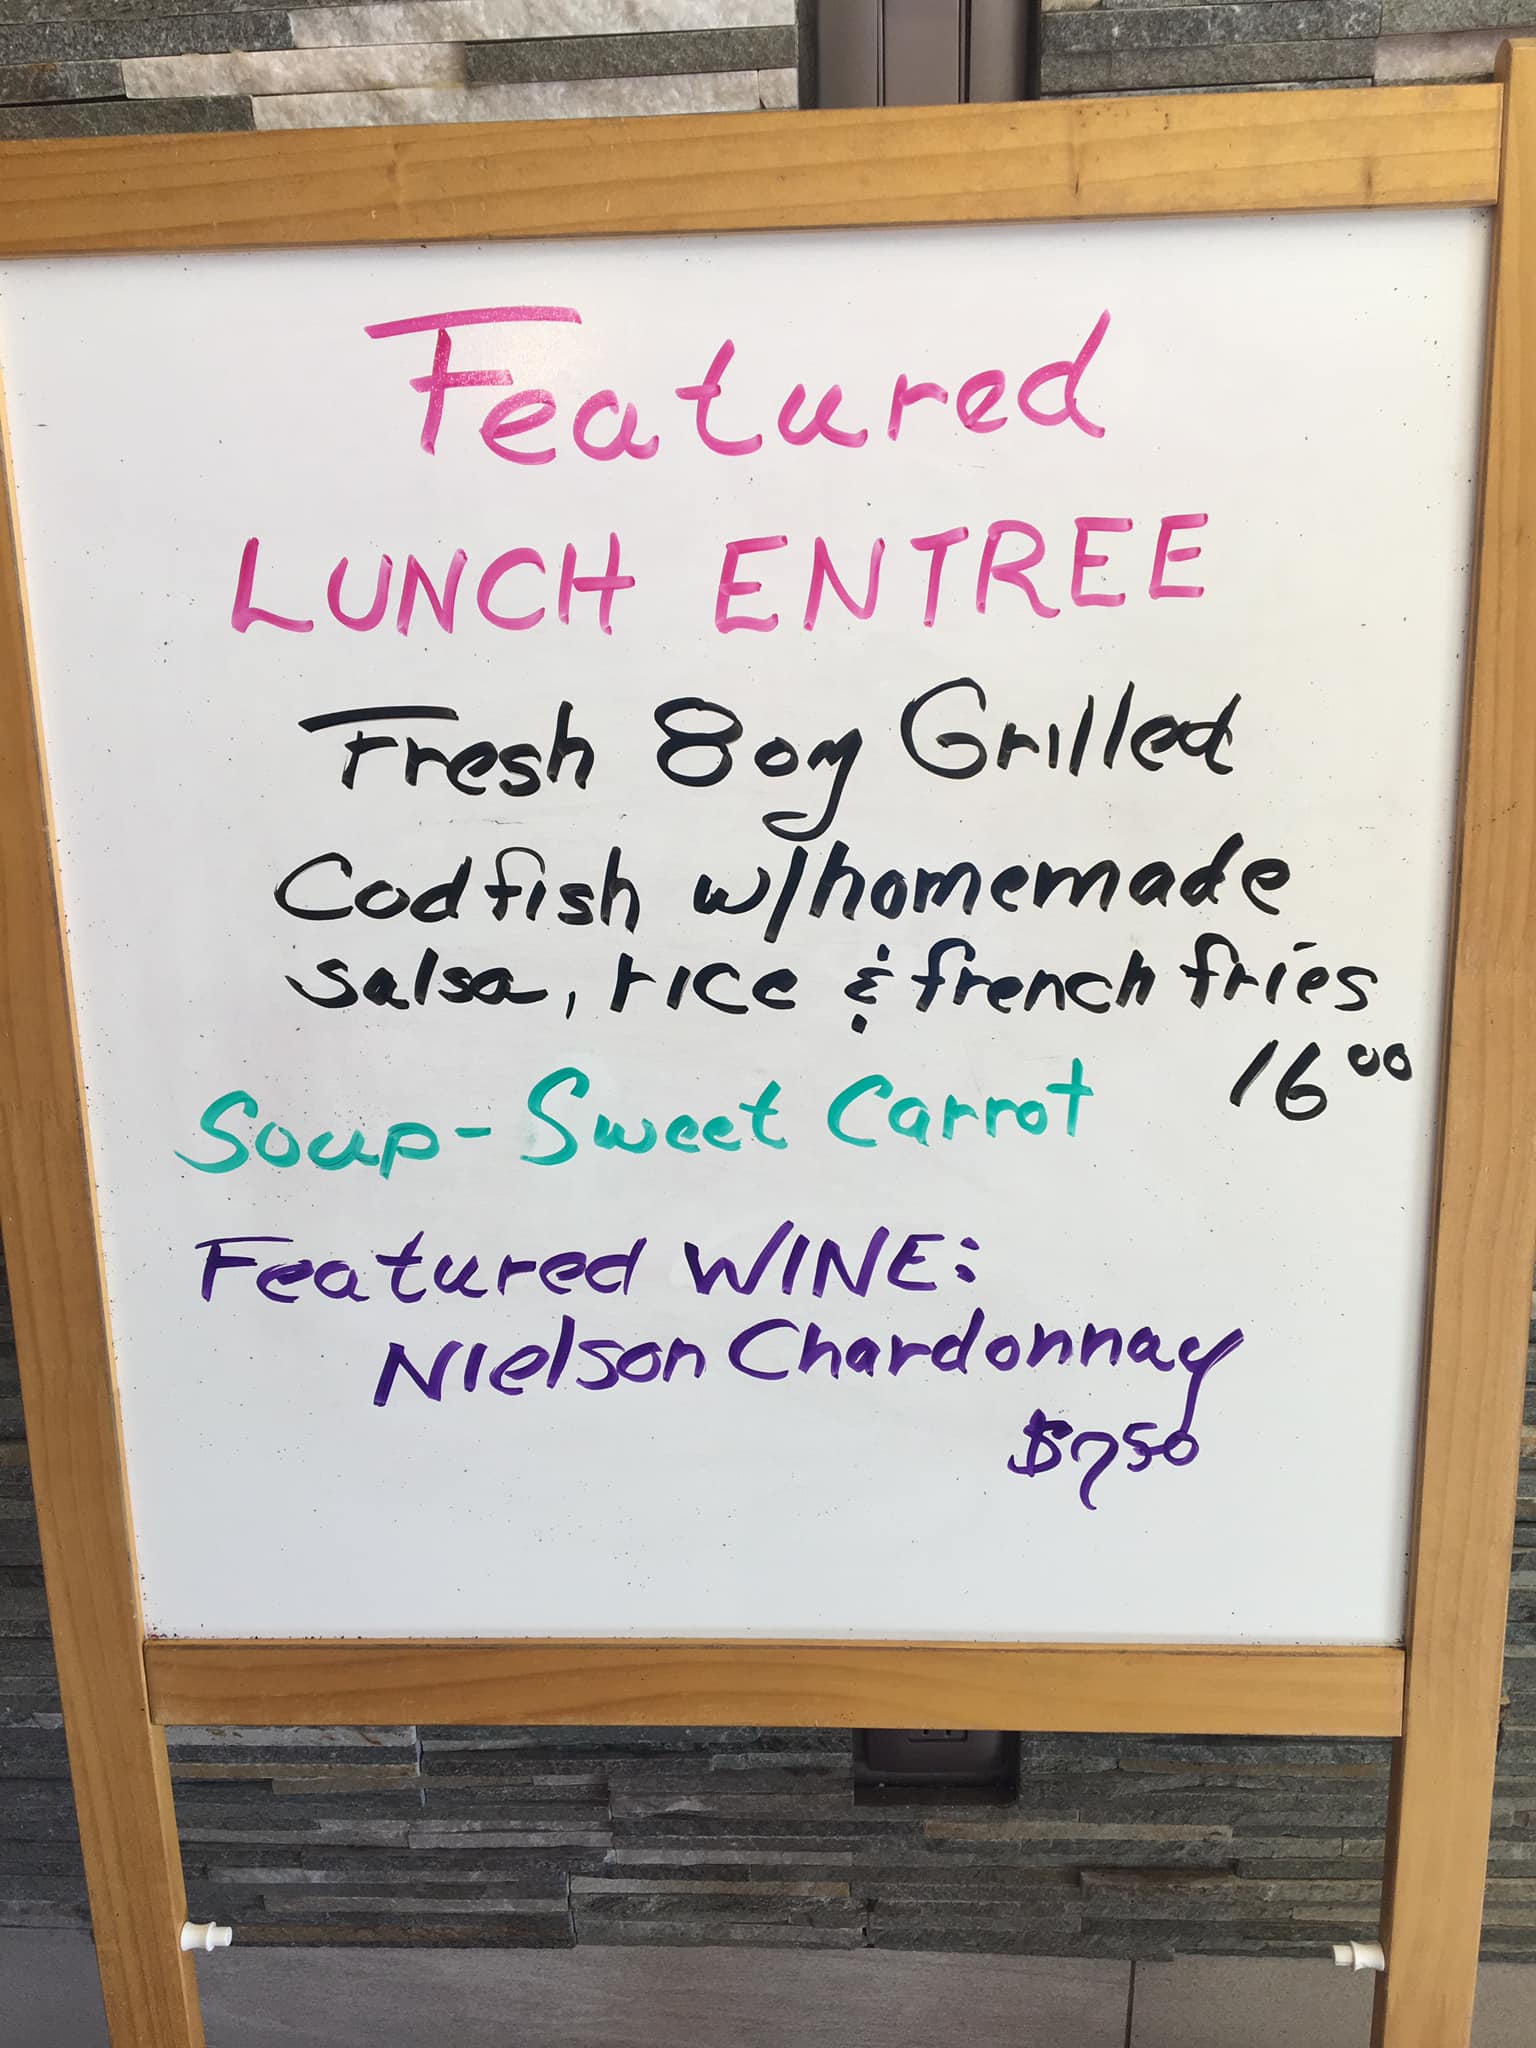 Featured
LUNCH ENTREE
Fresh 8oz Grilled
Codfish w/homemade
salsa, rice & french fries
16⁰⁰
Soup - Sweet Carrot
Featured WINE:
Nielson Chardonnay
$7⁵⁰